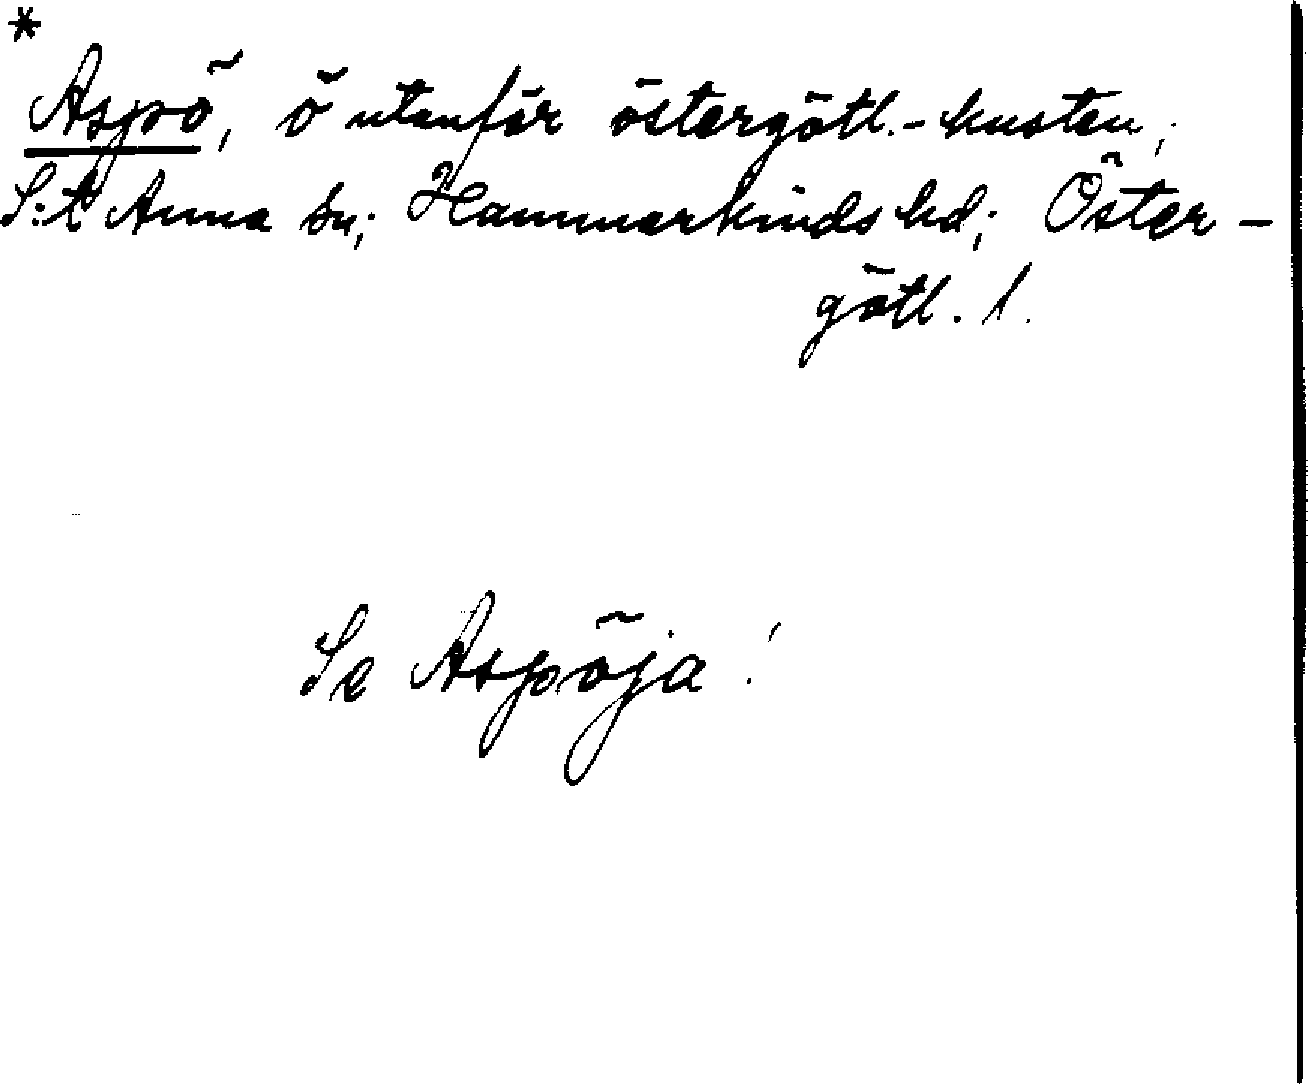 *
Aspö, ö utanför östergötl.-kusten;
S:t Anna sn; Hammarkinds hd; Öster-
götl. l.
Se Aspöja!